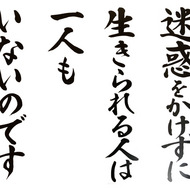 迷惑をかけずに
生きられる人は
一人も
いないのです